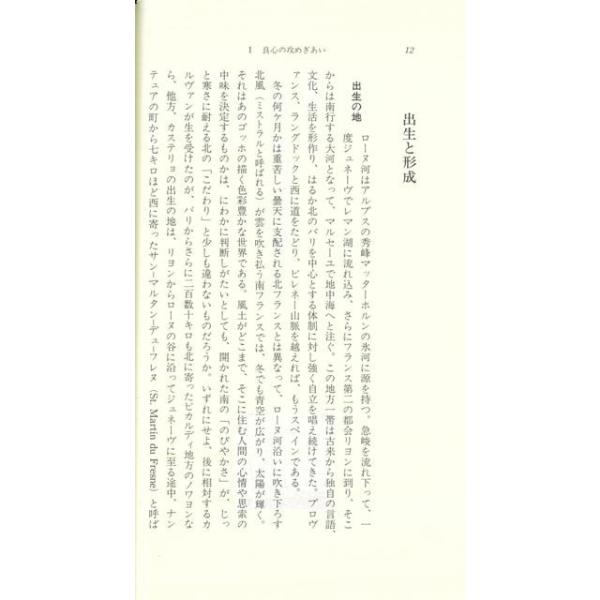 12
I 良心の攻めぎあい
出生と形成
出生の地
ローヌ河はアルプスの秀峰マッターホルンの氷河に源を持つ。急峻を流れ下って、一
度ジュネーヴでレマン湖に流れ込み、さらにフランス第二の都会リヨンに到り、そこ
からは南行する大河となって、マルセーユで地中海へと注ぐ。この地方一帯は古来から独自の言語、
文化、生活を形作り、はるか北のパリを中心とする体制に対し強く自立を唱え続けてきた。プロヴ
ァンス、ラングドックと西に道をたどり、ピレネー山脈を越えれば、もうスペインである。
冬の何ヶ月かは重苦しい曇天に支配される北フランスとは異なって、ローヌ河沿いに吹き下ろす
北風（ミストラルと呼ばれる）が雲を吹き払う南フランスでは、冬でも青空が広がり、太陽が輝く。
それはあのゴッホの描く色彩豊かな世界である。風土がどこまで、そこに住む人間の心情や思索の
中味を決定するものかは、にわかに判断しがたいとしても、開かれた南の「のびやかさ」が、じっ
と寒さに耐える北の「こだわり」と少しも違わないものだろうか。いずれにせよ、後に相対するカ
ルヴァンが生を受けたのが、パリからさらに二百数十キロも北に寄ったピカルディ地方のノワヨンな
ら、他方、カステリョの出生の地は、リヨンからローヌの谷に沿ってジュネーヴに至る途中、ナン
テュアの町から七キロほど西に寄ったサン＝マルタン＝デュ＝フレヌ（St. Martin du Fresne）と呼ば